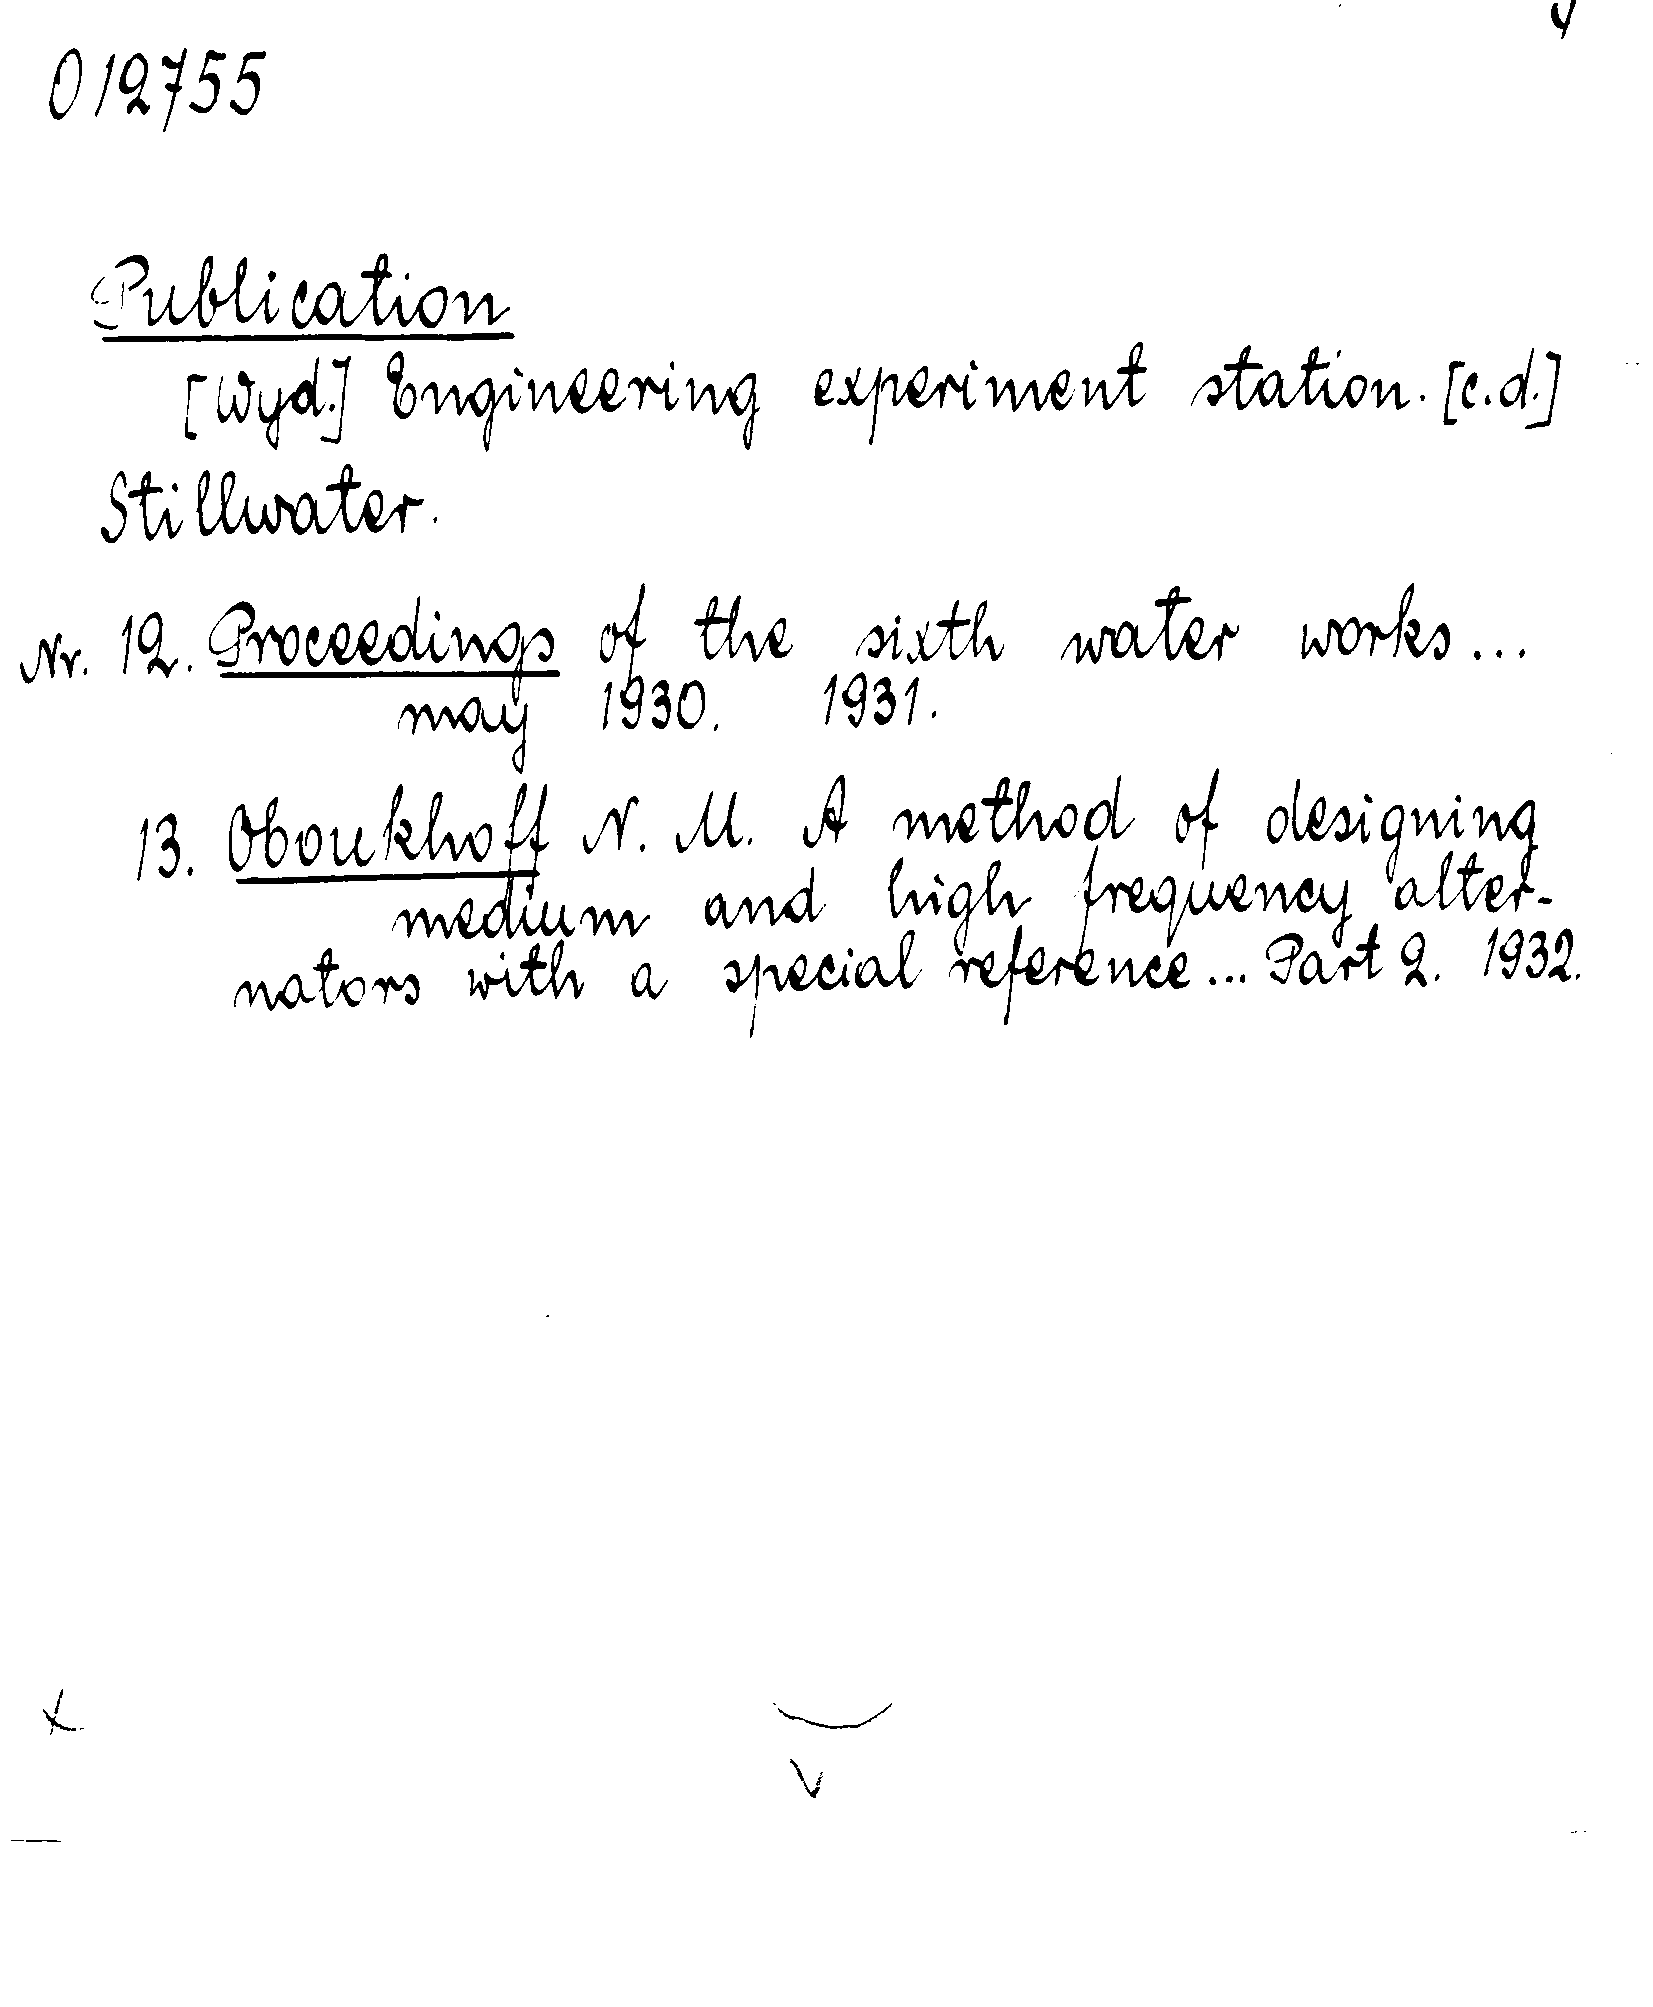 012755
Publication
[Wyd.] Engineering experiment station. [c.d.]
Stillwater.
Nr. 12. Proceedings of the sixth water works...
may 1930. 1931.
13. Oboukhoff N. M. A method of designing
medium and high frequency alter-
nators with a special reference... Part 2. 1932.